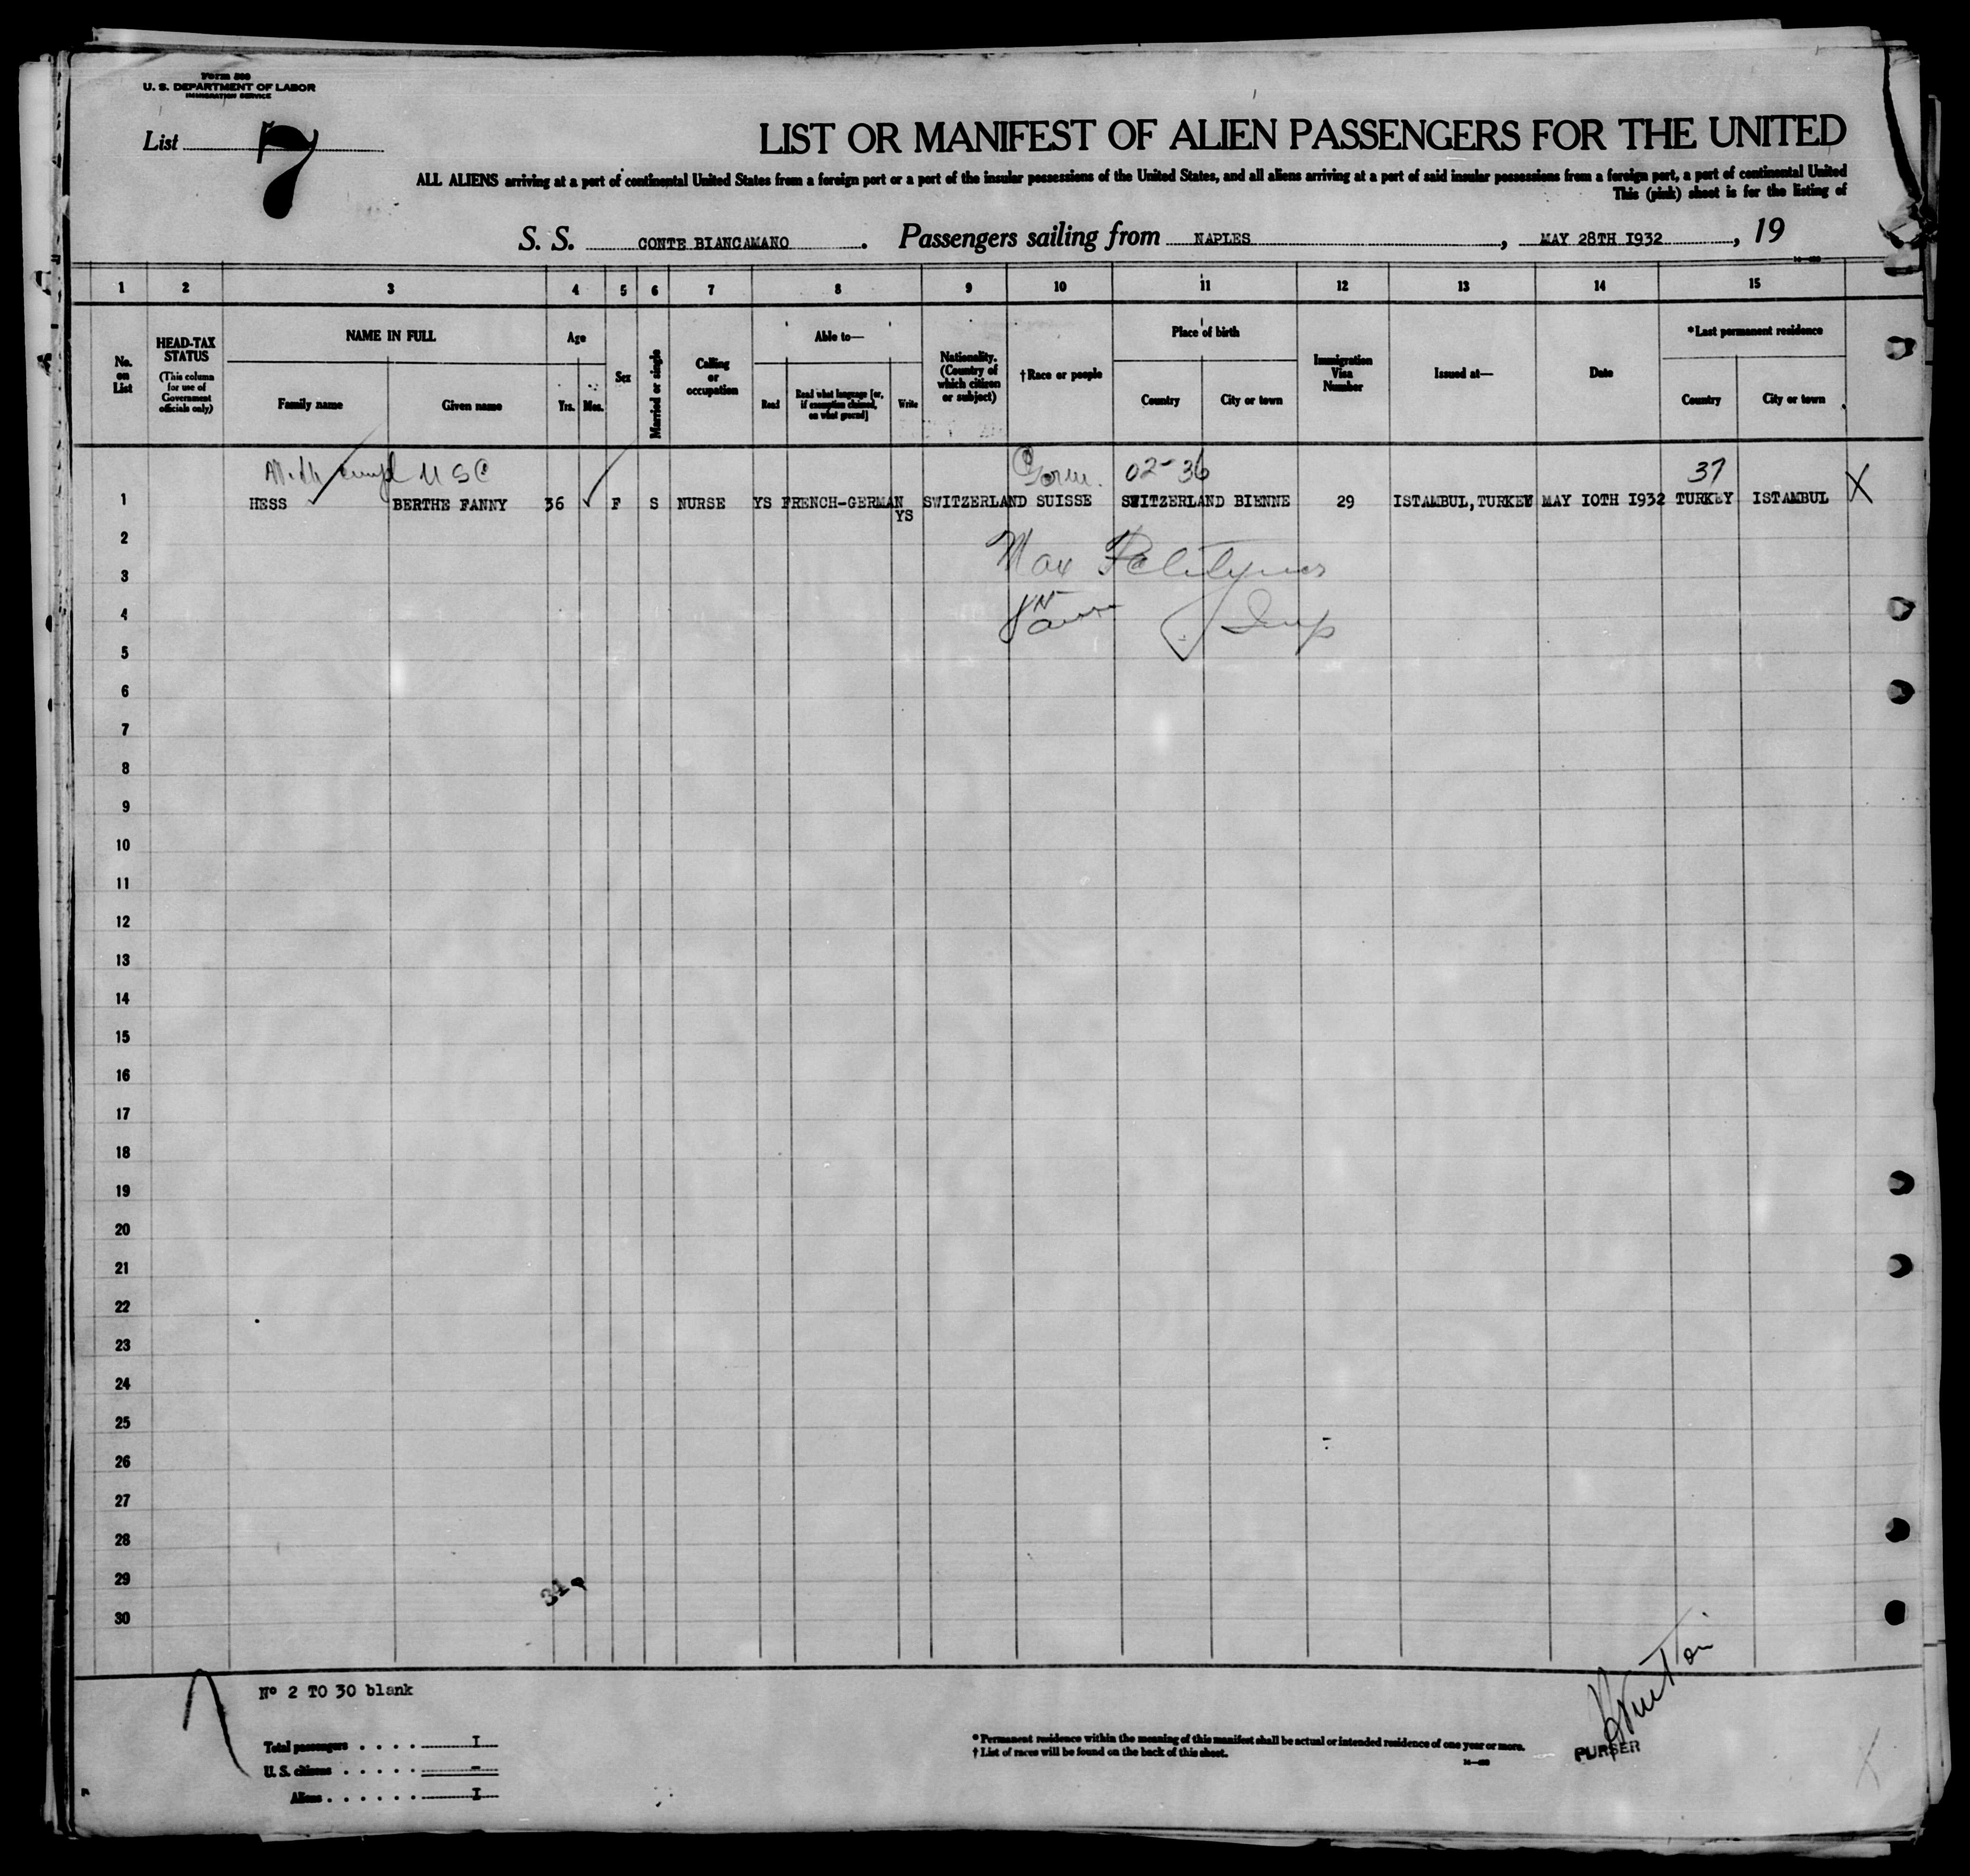 Form 500
U. S. DEPARTMENT OF LABOR
IMMIGRATION SERVICE
List 7
LIST OR MANIFEST OF ALIEN PASSENGERS FOR THE UNITED
ALL ALIENS arriving at a port of continental United States from a foreign port or a port of the insular possessions of the United States, and all aliens arriving at a port of said insular possessions from a foreign port, a port of continental United
This (pink) sheet is for the listing of
S. S. CONTE BIANCAMANO . Passengers sailing from NAPLES , MAY 28TH I932 , 19
1 2 3 4 5 6 7 8 9 10 11 12 13 14 15
No. on List
HEAD-TAX STATUS (This column for use of Government officials only)
NAME IN FULL
Family name Given name
Age
Yrs. Mos.
Sex
Married or single
Calling or occupation
Able to—
Read
Read what language [or, if exemption claimed, on what ground]
Write
Nationality. (Country of which citizen or subject)
†Race or people
Place of birth
Country City or town
Immigration Visa Number
Issued at—
Date
*Last permanent residence
Country City or town
With empl U S C Germ. 02-36 37
1 HESS BERTHE FANNY 36 F S NURSE YS FRENCH-GERMAN YS SWITZERLAND SUISSE SWITZERLAND BIENNE 29 ISTAMBUL,TURKEY MAY IOTH I932 TURKEY ISTAMBUL X
2
Max
3
4
Insp
5
6
7
8
9
10
11
12
13
14
15
16
17
18
19
20
21
22
23
24
25
26
27
28
29
30
Nº 2 TO 30 blank
Total passengers . . . . I
U. S. citizens . . . . . -
Aliens . . . . . . I
* Permanent residence within the meaning of this manifest shall be actual or intended residence of one year or more.
† List of races will be found on the back of this sheet.
PURSER
X